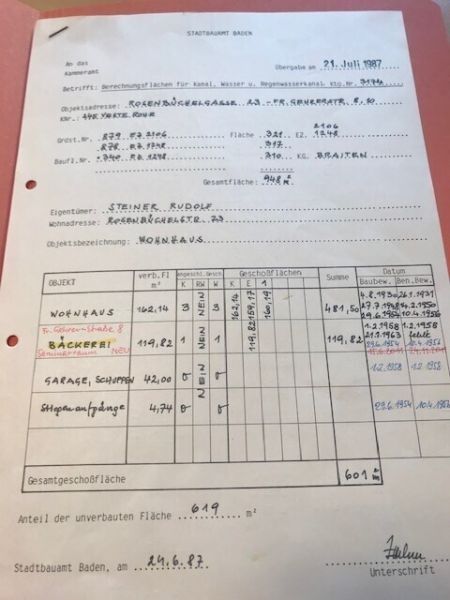 STADTBAUAMT BADEN
An das
Kammeramt
Übergabe am 21. Juli 1987
Betrifft: Berechnungsflächen für Kanal, Wasser u. Regenwasserkanal Ktg.Nr. 3174
Objektsadresse: ROSENBÜCHELGASSE 23 - FR. GEHRERSTR 8, 10
KNr.:
Grdst.Nr. 879 EZ 2106 Fläche 321 EZ. 2106 1248
878 EZ 1248 317
Baufl.Nr. 340 EZ 1248 310 KG. BRAITEN
Gesamtfläche: 948 m²
Eigentümer: STEINER RUDOLF
Wohnadresse: ROSENBÜCHELSTG 23
Objektsbezeichnung: WOHNHAUS
OBJEKT verb.Fl m² angeschl. Gesch. K RW W Geschoßflächen K E 1 Summe Datum Baubew. Ben.Bew.
WOHNHAUS 162,14 3 NEIN 3 162,14 159,17 160,19 481,50 4.8.1930 26.1.1931
27.7.1948 14.2.1950
29.6.1954 10.4.1956
Fr. Gehrer-Straße 8
BÄCKEREI 119,82 1 NEIN 1 119,82 119,82 1.2.1958 1.2.1958
NEU 29.6.1954 10.4.1956
GARAGE, SCHUPPEN 42,00 0 NEIN 0 1.2.1958 1.2.1958
Stiegenaufgänge 4,74 0 0 29.6.1954 10.4.1956
Gesamtgeschoßfläche 601 m²
Anteil der unverbauten Fläche 619 m²
Stadtbauamt Baden, am 24.6.87
Unterschrift